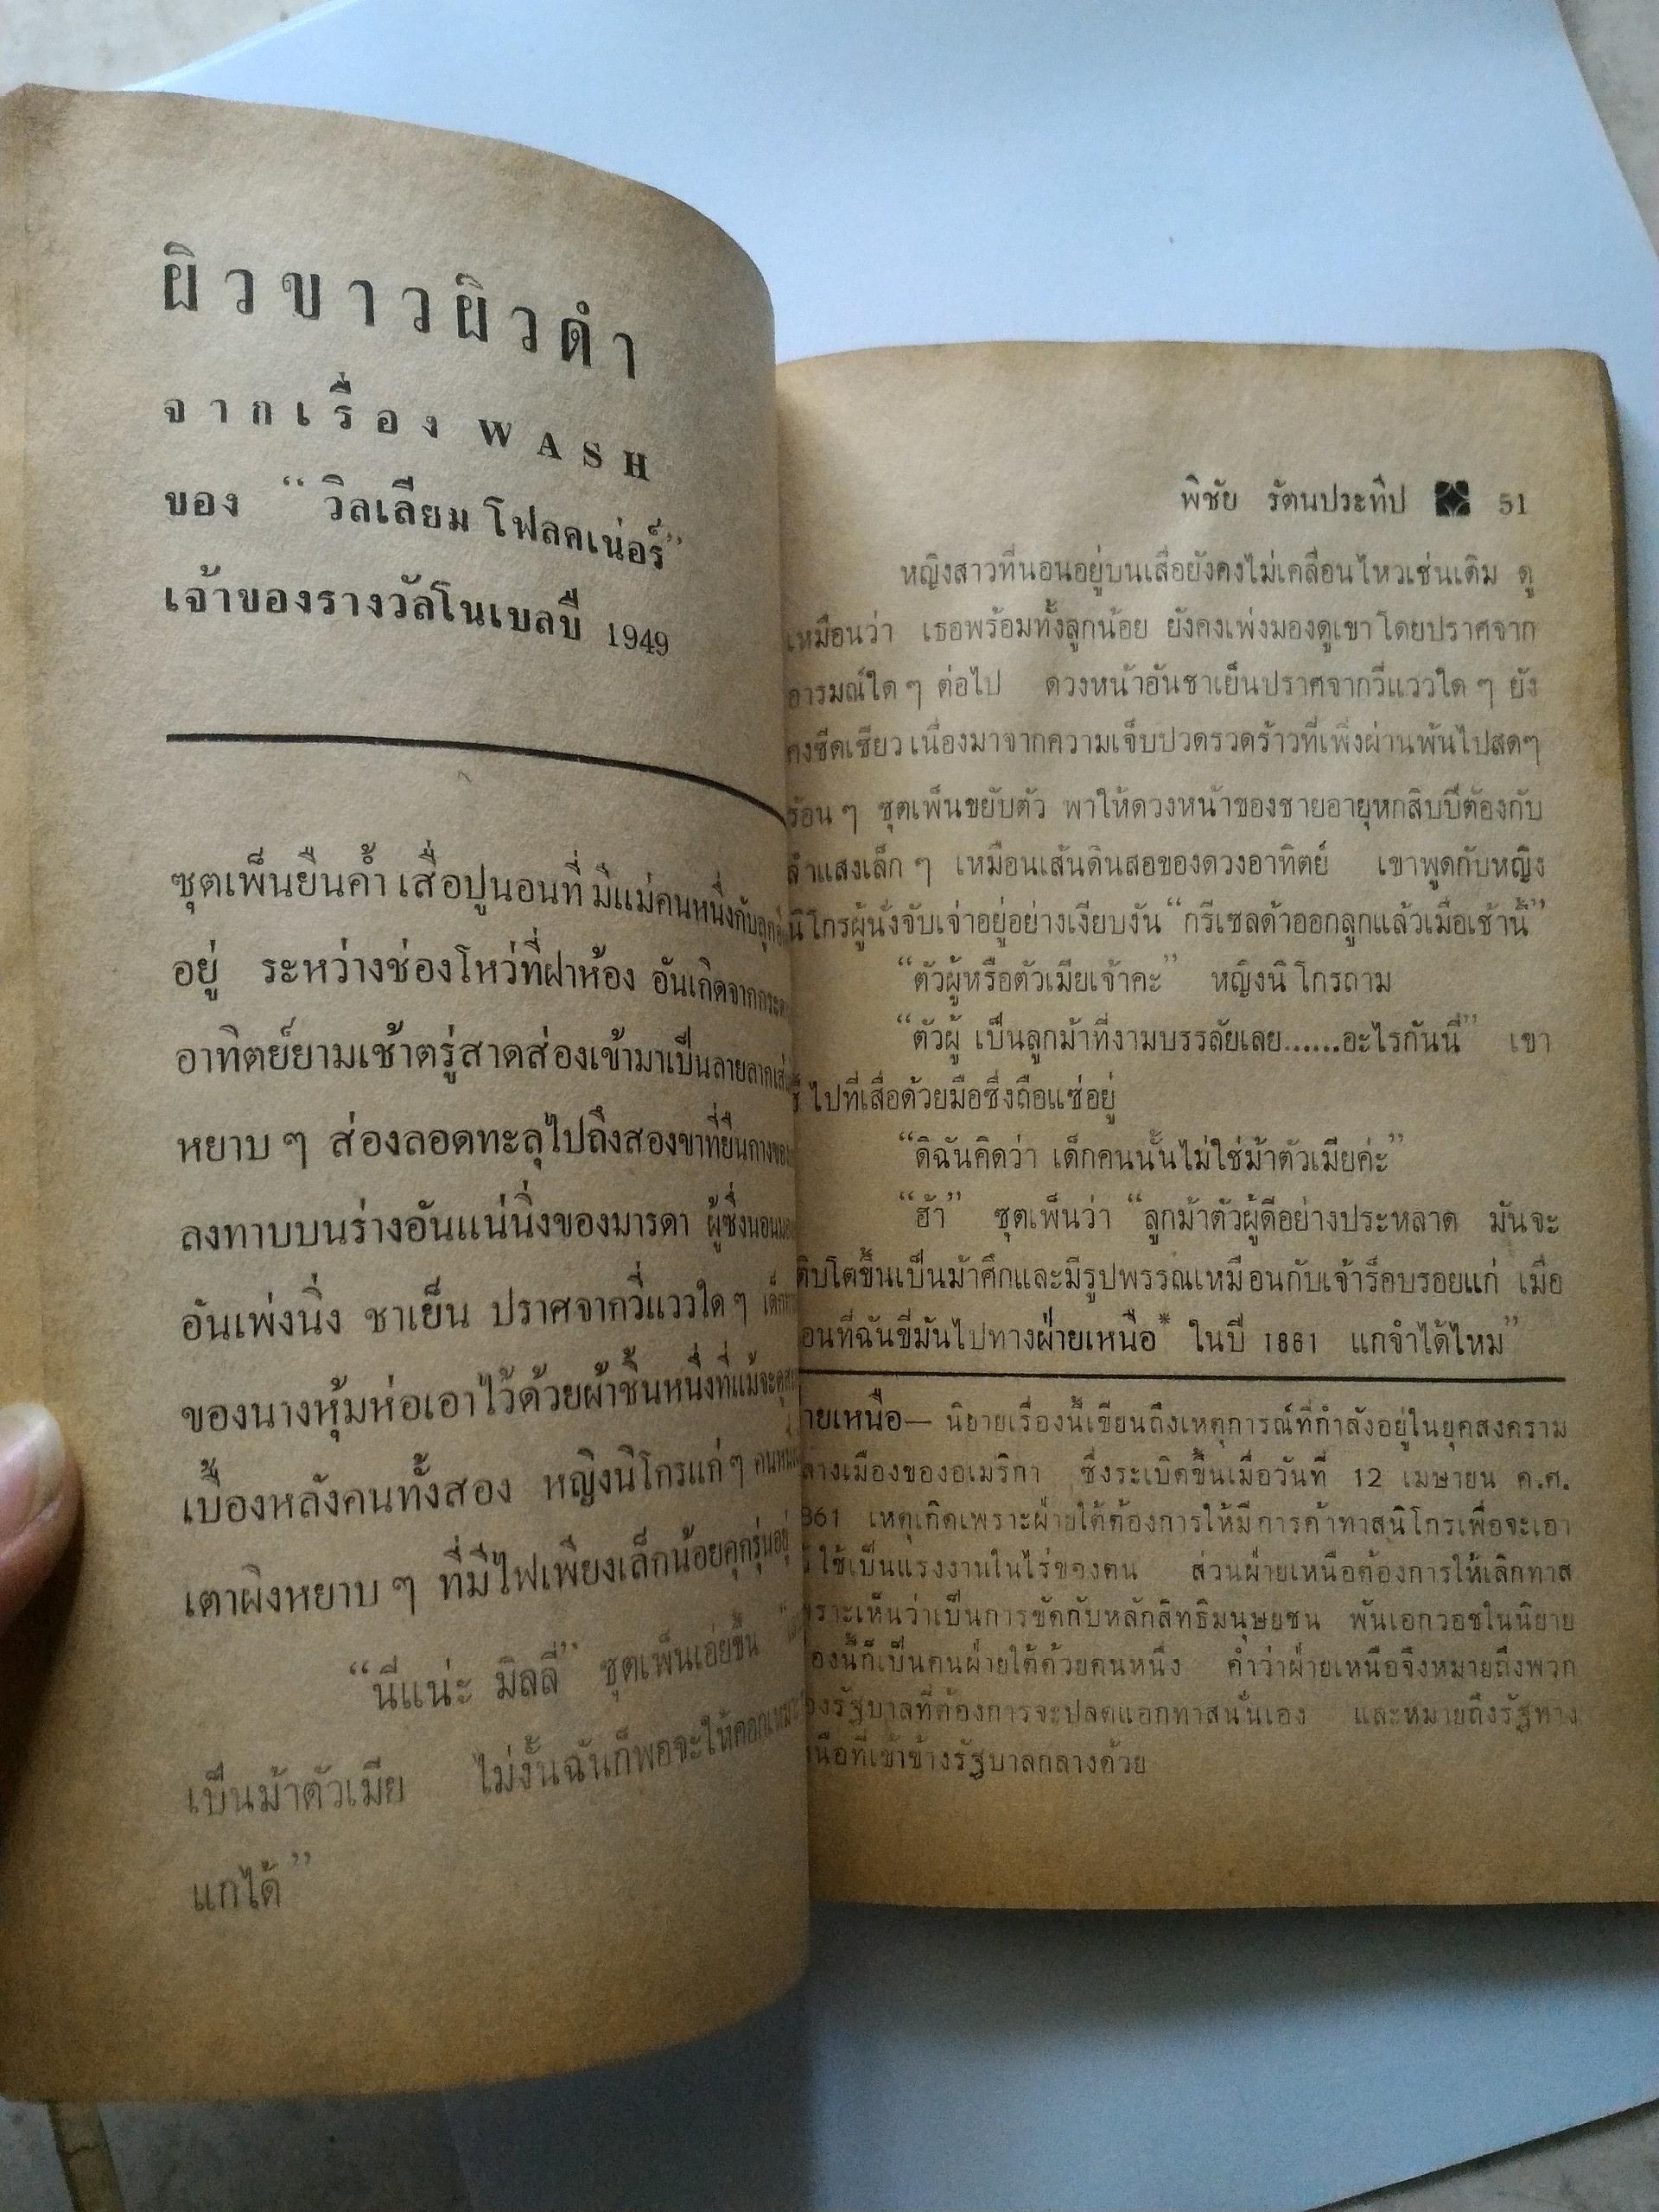 ผิวขาวผิวดำ
จากเรื่อง WASH
ของ “วิลเลียม โฟลคเน่อร์”
เจ้าของรางวัลโนเบลปี 1949
ซุตเพ็นยืนค้ำ เสื่อปูนอนที่ มีแม่คนหนึ่งกับลูก
อยู่ ระหว่างช่องโหว่ที่ฝาห้อง อันเกิดจาก
อาทิตย์ยามเช้าตรู่สาดส่องเข้ามาเป็นลายลาก
หยาบ ๆ ส่องลอดทะลุไปถึงสองขาที่ยืนกาง
ลงทาบบนร่างอันแน่นิ่งของมารดา ผู้ซึ่งนอน
อันเพ่งนิ่ง ชาเย็น ปราศจากวี่แววใด ๆ
ของนางหุ้มห่อเอาไว้ด้วยผ้าชิ้นหนึ่งที่แม้จะ
เบื้องหลังคนทั้งสอง หญิงนิโกรแก่ ๆ
เตาผิงหยาบ ๆ ที่มีไฟเพียงเล็กน้อยคุกรุ่นอยู่
“นี่แน่ะ มิลลี่” ซุตเพ็นเอ่ยขึ้น
เป็นม้าตัวเมีย ไม่งั้นฉันก็พอจะให้คอก
แกได้”
พิชัย รัตนประทีป 51
หญิงสาวที่นอนอยู่บนเสื่อยังคงไม่เคลื่อนไหวเช่นเดิม ดู
เหมือนว่า เธอพร้อมทั้งลูกน้อย ยังคงเพ่งมองดูเขาโดยปราศจาก
อารมณ์ใด ๆ ต่อไป ดวงหน้าอันชาเย็นปราศจากวี่แววใด ๆ ยัง
คงซีดเซียว เนื่องมาจากความเจ็บปวดรวดร้าวที่เพิ่งผ่านพ้นไปสดๆ
ร้อน ๆ ซุตเพ็นขยับตัว พาให้ดวงหน้าของชายอายุหกสิบปีต้องกับ
ลำแสงเล็ก ๆ เหมือนเส้นดินสอของดวงอาทิตย์ เขาพูดกับหญิง
นิโกรผู้นั่งจับเจ่าอยู่อย่างเงียบงัน “กรีเซลด้าออกลูกแล้วเมื่อเช้านี้”
“ตัวผู้หรือตัวเมียเจ้าคะ” หญิงนิโกรถาม
“ตัวผู้ เป็นลูกม้าที่งามบรรลัยเลย......อะไรกันนี่” เขา
ชี้ ไปที่เสื่อด้วยมือซึ่งถือแซ่อยู่
“ดิฉันคิดว่า เด็กคนนั้นไม่ใช่ม้าตัวเมียค่ะ”
“ฮ้า” ซุตเพ็นว่า “ลูกม้าตัวผู้ดีอย่างประหลาด มันจะ
ติบโตขึ้นเป็นม้าศึกและมีรูปพรรณเหมือนกับเจ้าร็อบรอยแก่ เมื่อ
อนที่ฉันขี่มันไปทางฝ่ายเหนือ* ในปี 1861 แกจำได้ไหม”
ายเหนือ— นิยายเรื่องนี้เขียนถึงเหตุการณ์ที่กำลังอยู่ในยุคสงคราม
ลางเมืองของอเมริกา ซึ่งระเบิดขึ้นเมื่อวันที่ 12 เมษายน ค.ศ.
861 เหตุเกิดเพราะฝ่ายใต้ต้องการให้มีการค้าทาสนิโกรเพื่อจะเอา
ใช้เป็นแรงงานในไร่ของตน ส่วนฝ่ายเหนือต้องการให้เลิกทาส
พราะเห็นว่าเป็นการขัดกับหลักสิทธิมนุษยชน พันเอกวอชในนิยาย
องนี้ก็เป็นคนฝ่ายใต้ด้วยคนหนึ่ง คำว่าฝ่ายเหนือจึงหมายถึงพวก
องรัฐบาลที่ต้องการจะปลดแอกทาสนั่นเอง และหมายถึงรัฐทาง
นือที่เข้าข้างรัฐบาลกลางด้วย